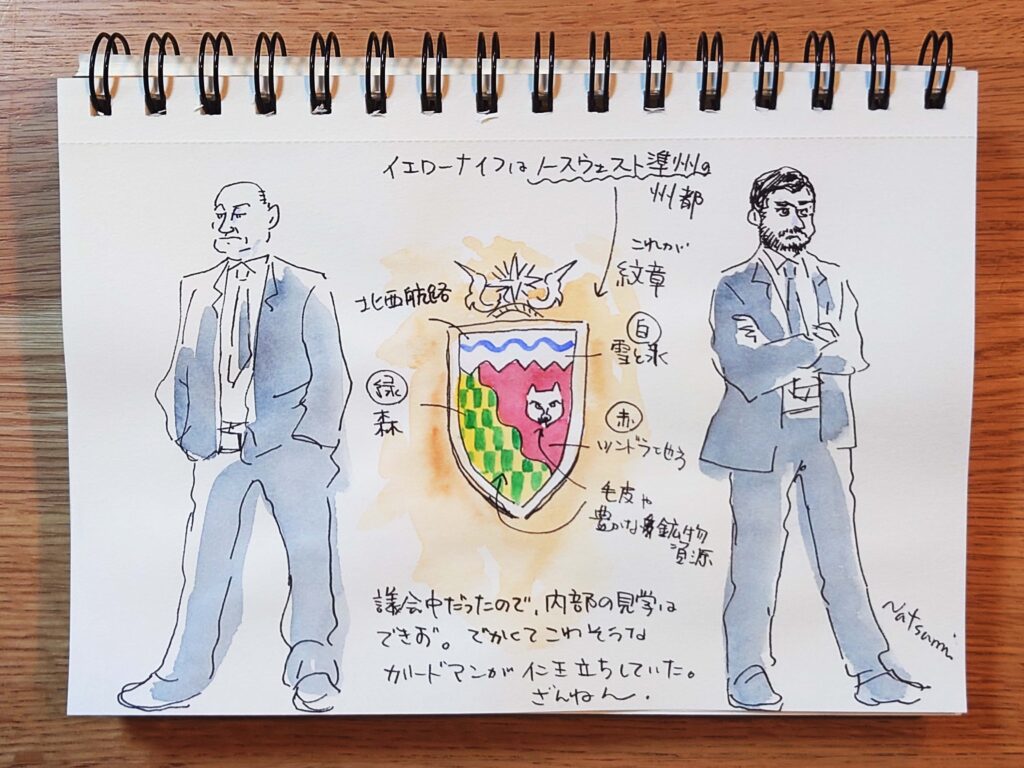 イエローナイフはノースウェスト準州の
州都
これが
紋章
北西航路
白
雪と氷
緑
森
赤
ツンドラ地方
毛皮や
豊かな鉱物
資源
議会中だったので、内部の見学は
できず。でかくてこわそうな
ガードマンが仁王立ちしていた。
ざんねん.
Natsumi